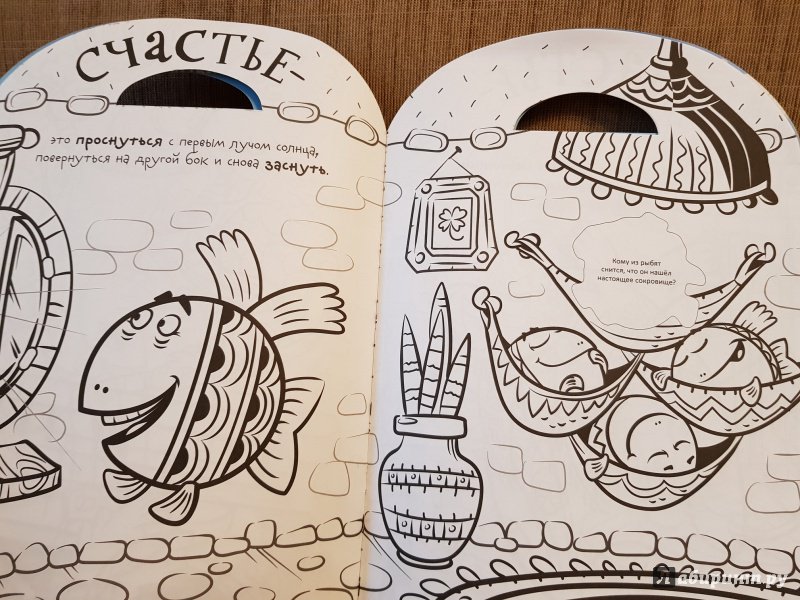 СЧАСТЬЕ-
это проснуться с первым лучом солнца,
повернуться на другой бок и снова заснуть.
Кому из рыбят
снится, что он нашёл
настоящее сокровище?
Лабиринт.ру